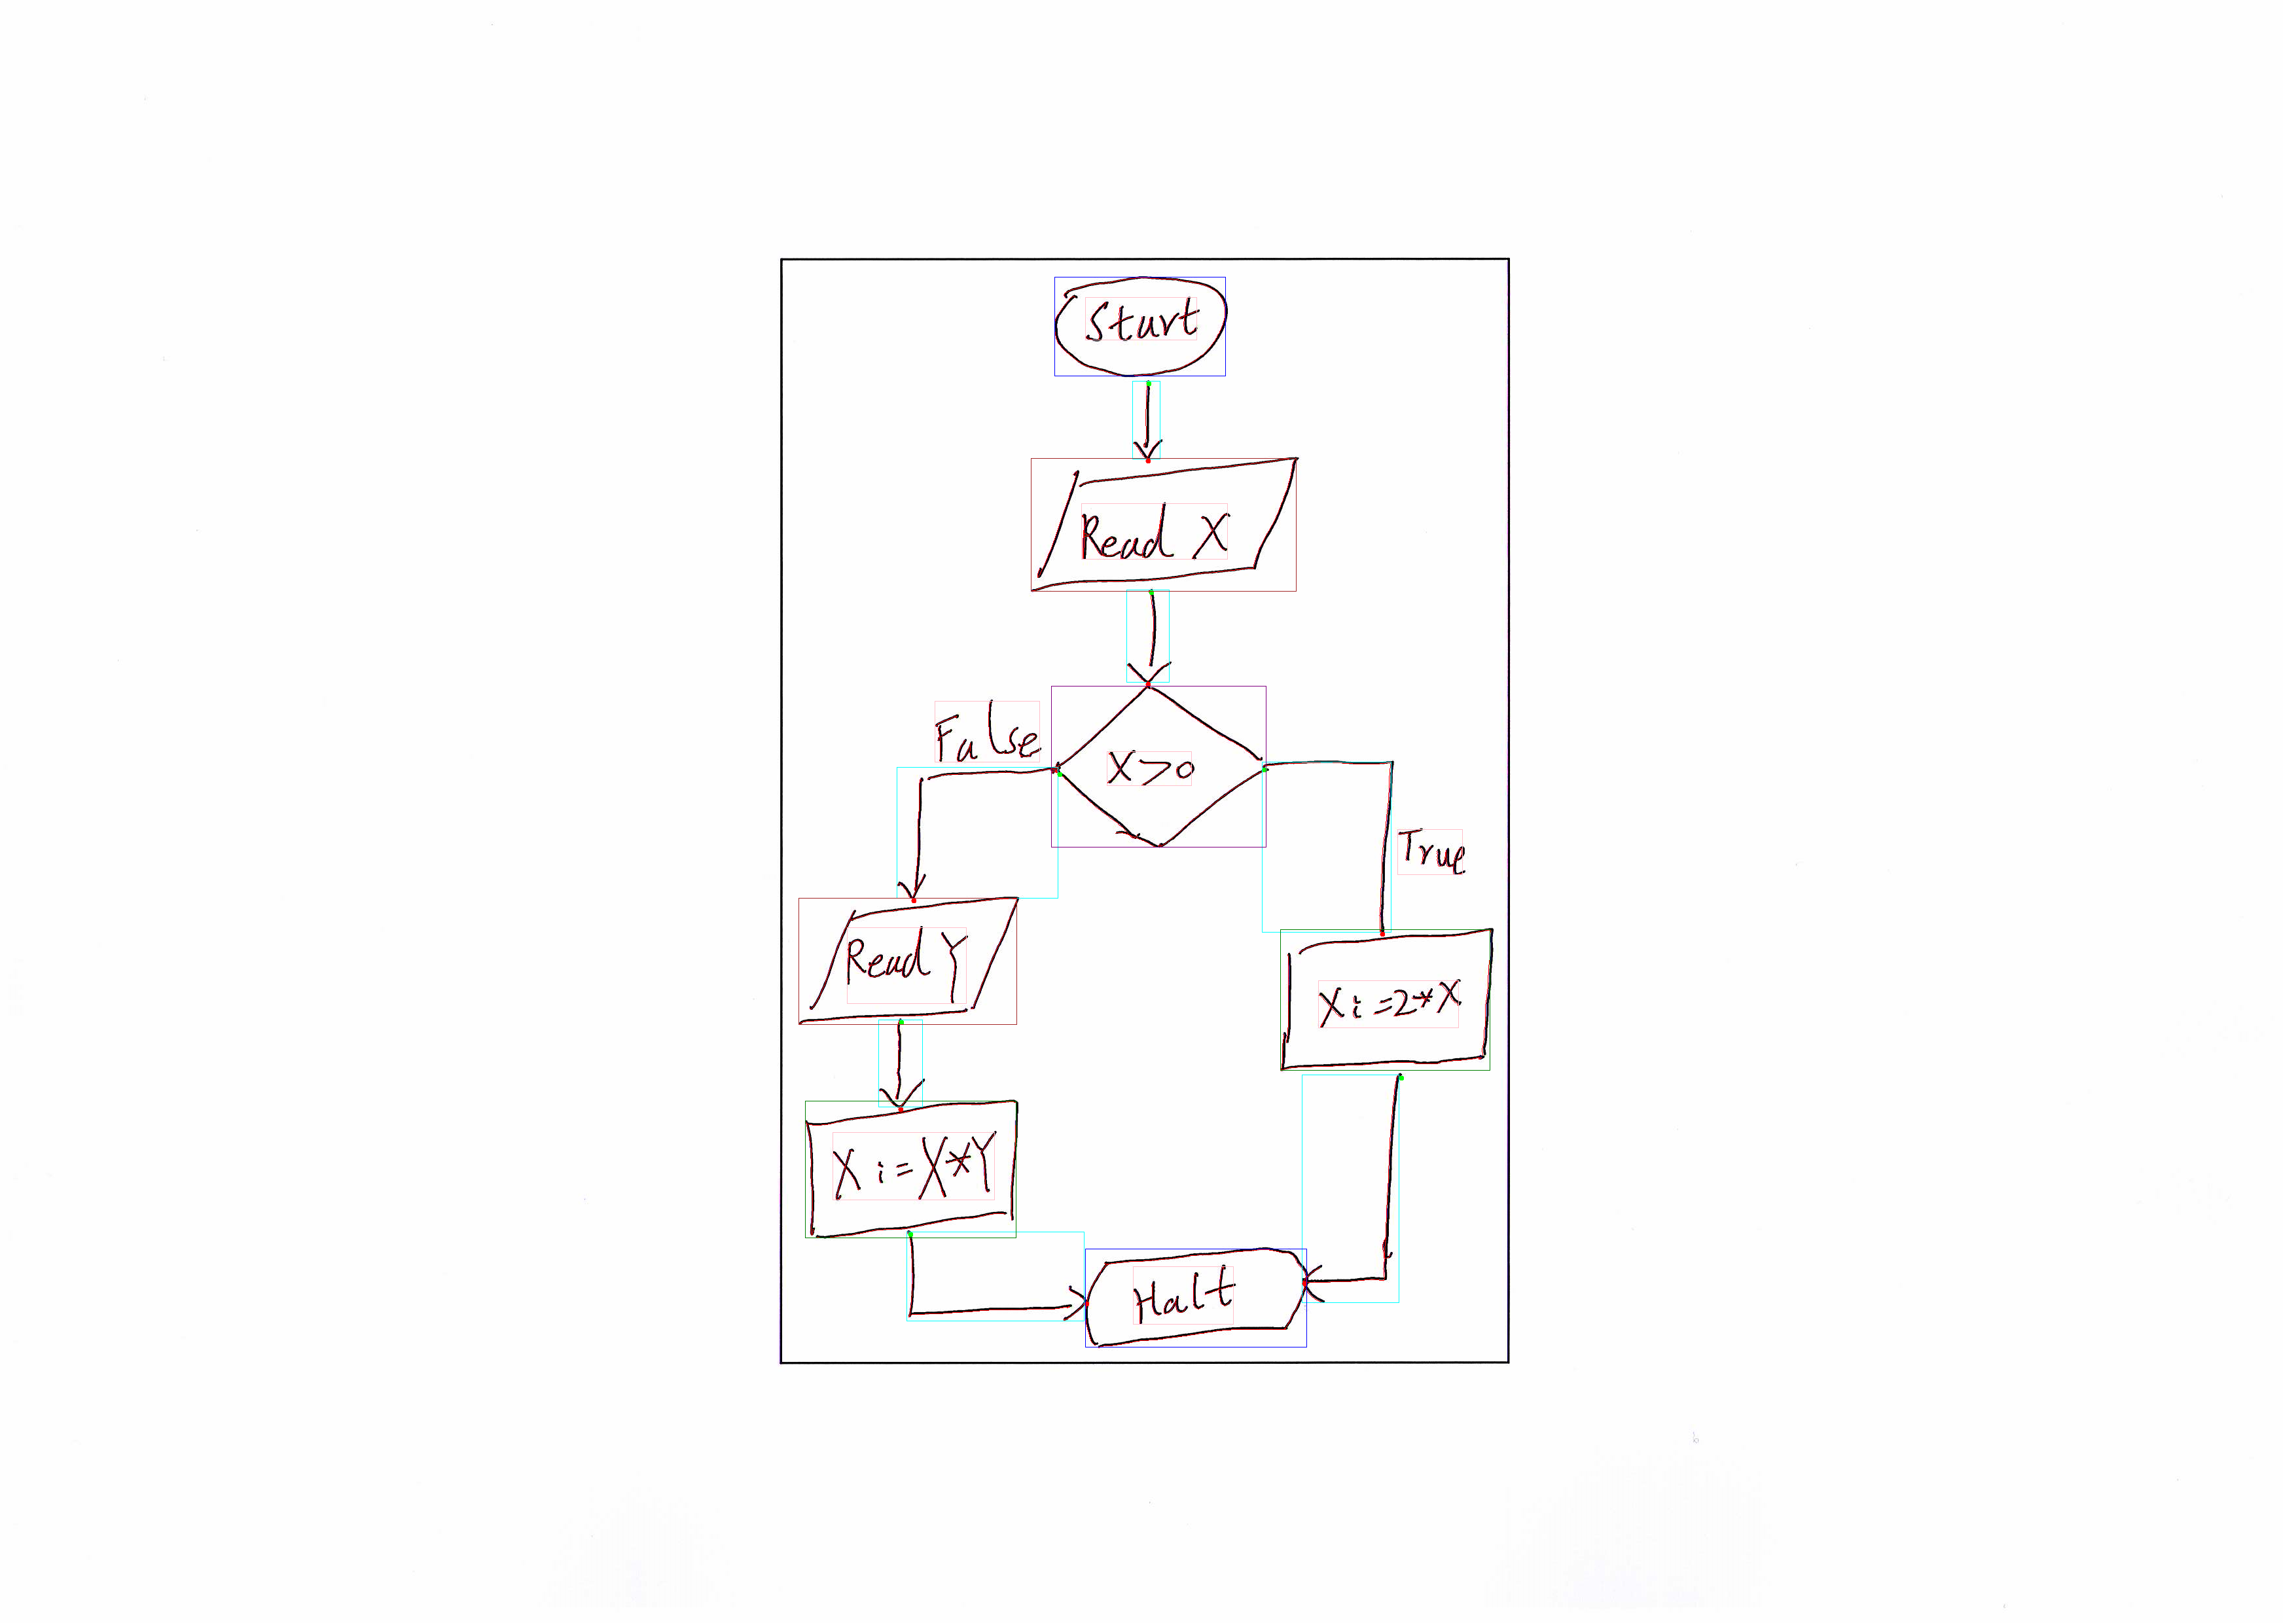 Start
Read X
False
X>0
True
Read Y
Xi=2*X
Xi=X*Y
Halt